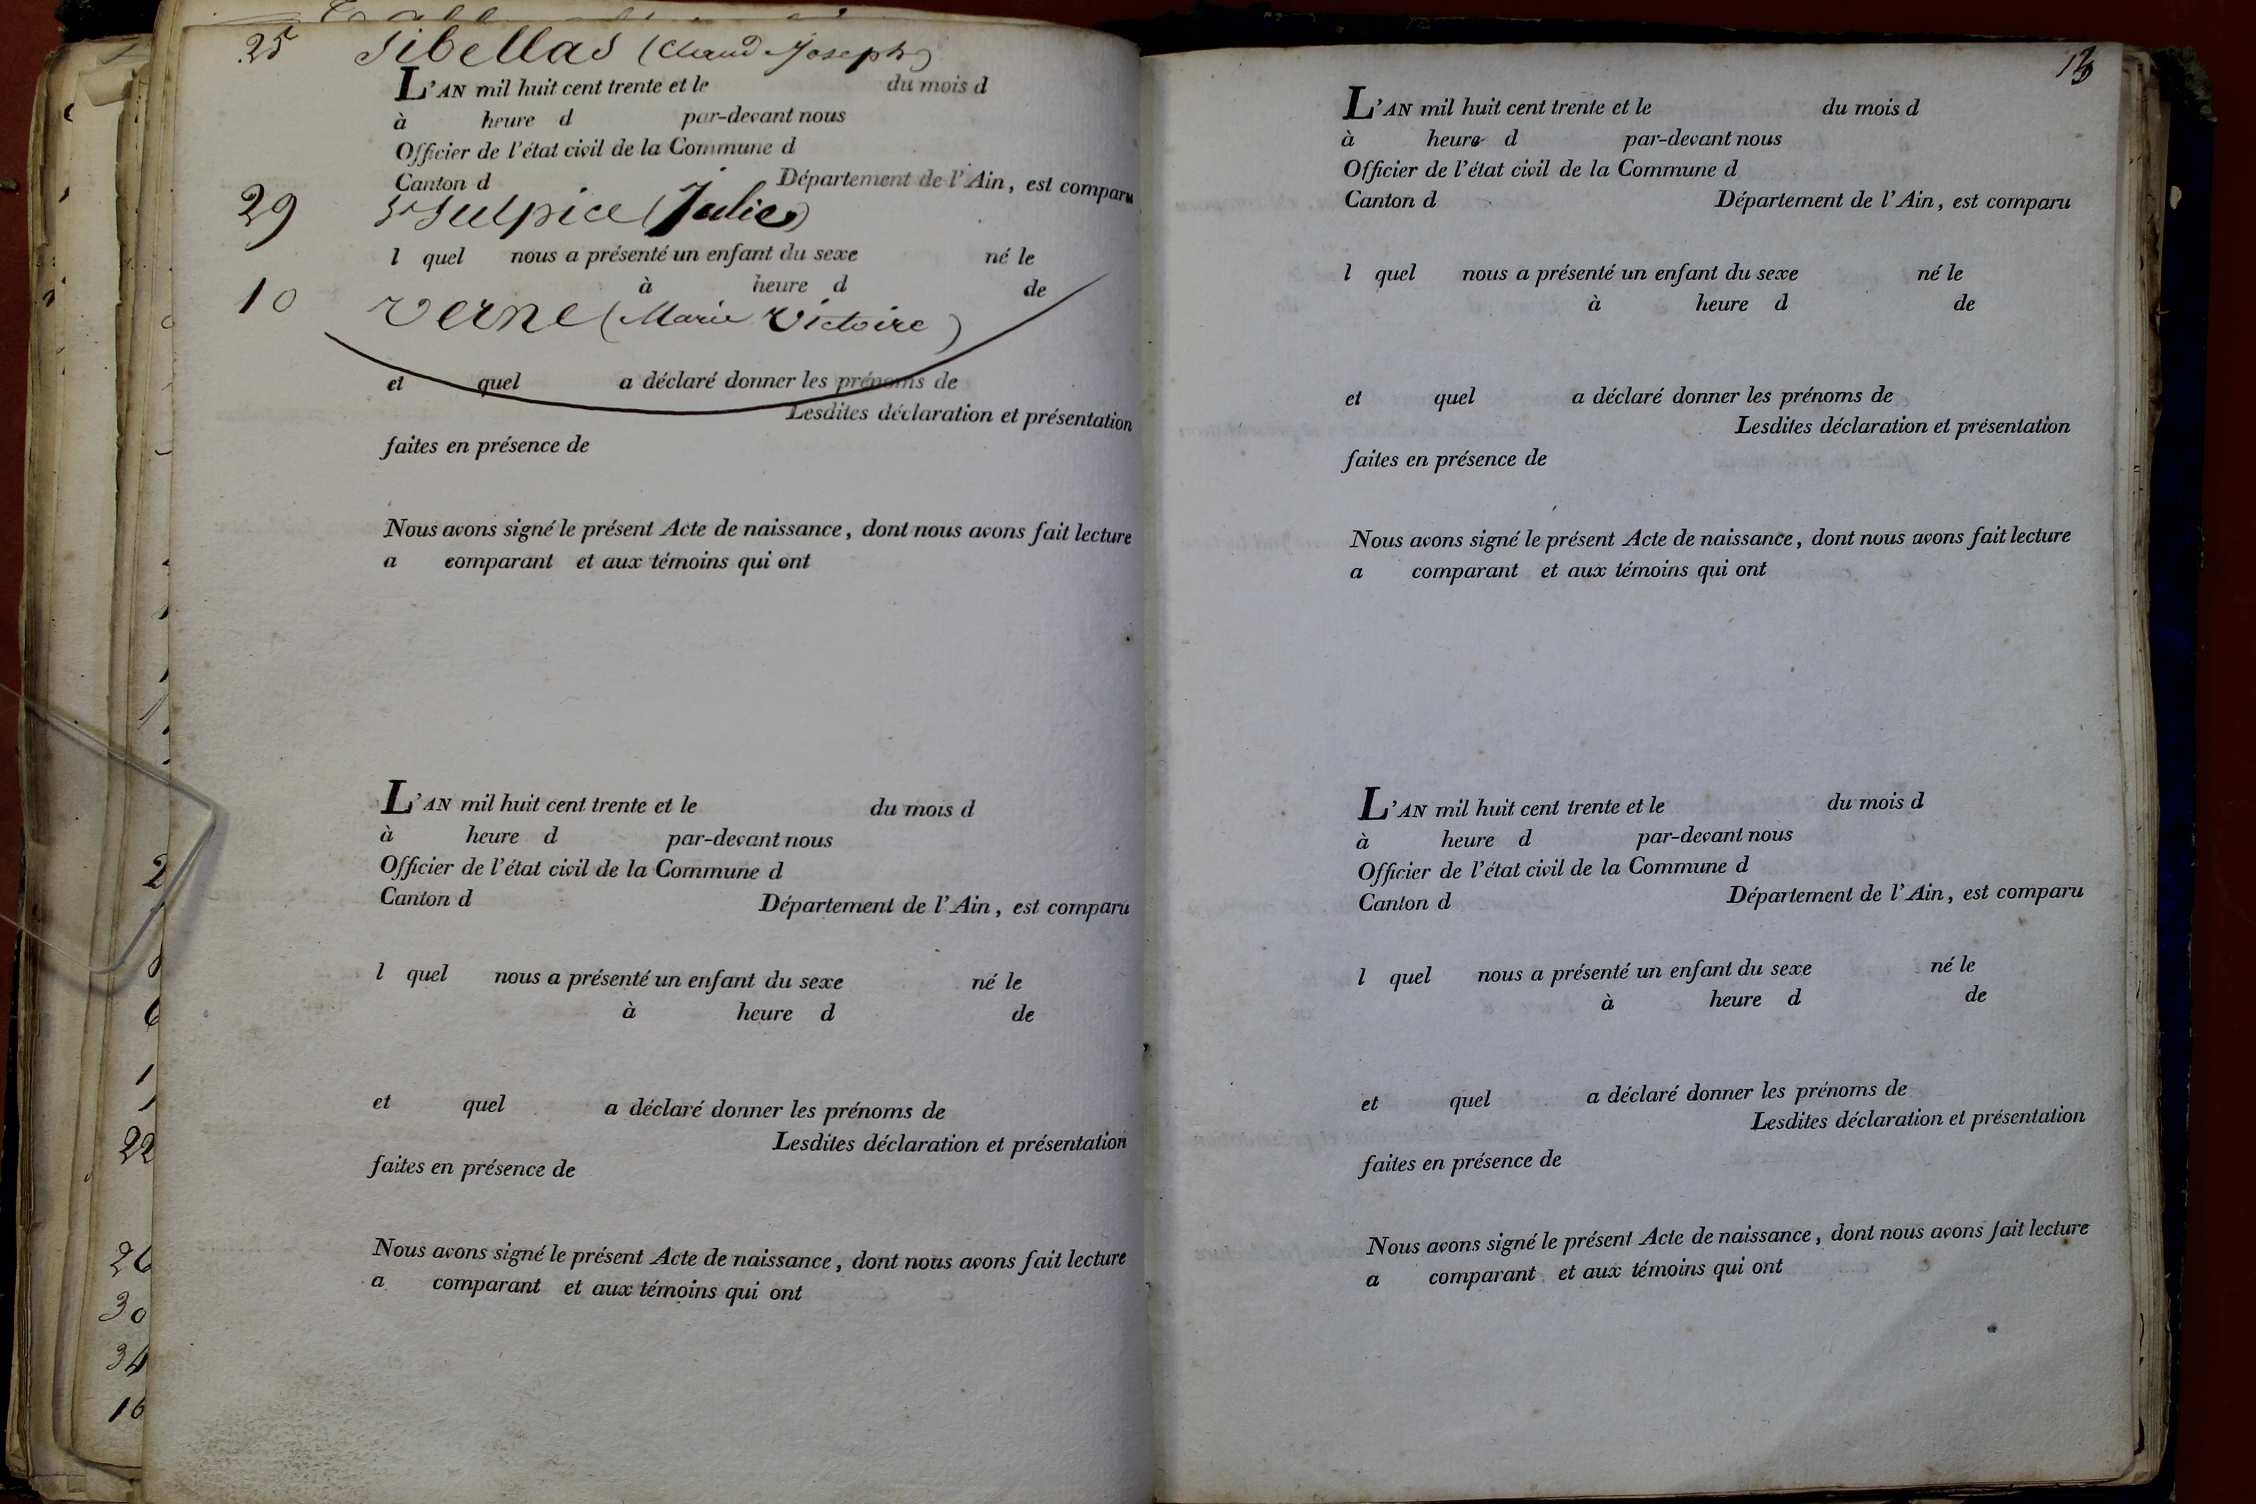 25 Sibellas (Claud Joseph)
L'AN mil huit cent trente et le du mois d
à heure d par-devant nous
Officier de l'état civil de la Commune d
Canton d Département de l'Ain, est comparu
29 St Sulpice (Julie)
l quel nous a présenté un enfant du sexe né le
à heure d de
10 Verne (Marie Victoire)
et quel a déclaré donner les prénoms de
Lesdites déclaration et présentation
faites en présence de
Nous avons signé le présent Acte de naissance, dont nous avons fait lecture
a comparant et aux témoins qui ont
L'AN mil huit cent trente et le du mois d
à heure d par-devant nous
Officier de l'état civil de la Commune d
Canton d Département de l'Ain, est comparu
l quel nous a présenté un enfant du sexe né le
à heure d de
et quel a déclaré donner les prénoms de
Lesdites déclaration et présentation
faites en présence de
Nous avons signé le présent Acte de naissance, dont nous avons fait lecture
a comparant et aux témoins qui ont
2
22
26
30
34
16
13
L'AN mil huit cent trente et le du mois d
à heure d par-devant nous
Officier de l'état civil de la Commune d
Canton d Département de l'Ain, est comparu
l quel nous a présenté un enfant du sexe né le
à heure d de
et quel a déclaré donner les prénoms de
Lesdites déclaration et présentation
faites en présence de
Nous avons signé le présent Acte de naissance, dont nous avons fait lecture
a comparant et aux témoins qui ont
L'AN mil huit cent trente et le du mois d
à heure d par-devant nous
Officier de l'état civil de la Commune d
Canton d Département de l'Ain, est comparu
l quel nous a présenté un enfant du sexe né le
à heure d de
et quel a déclaré donner les prénoms de
Lesdites déclaration et présentation
faites en présence de
Nous avons signé le présent Acte de naissance, dont nous avons fait lecture
a comparant et aux témoins qui ont